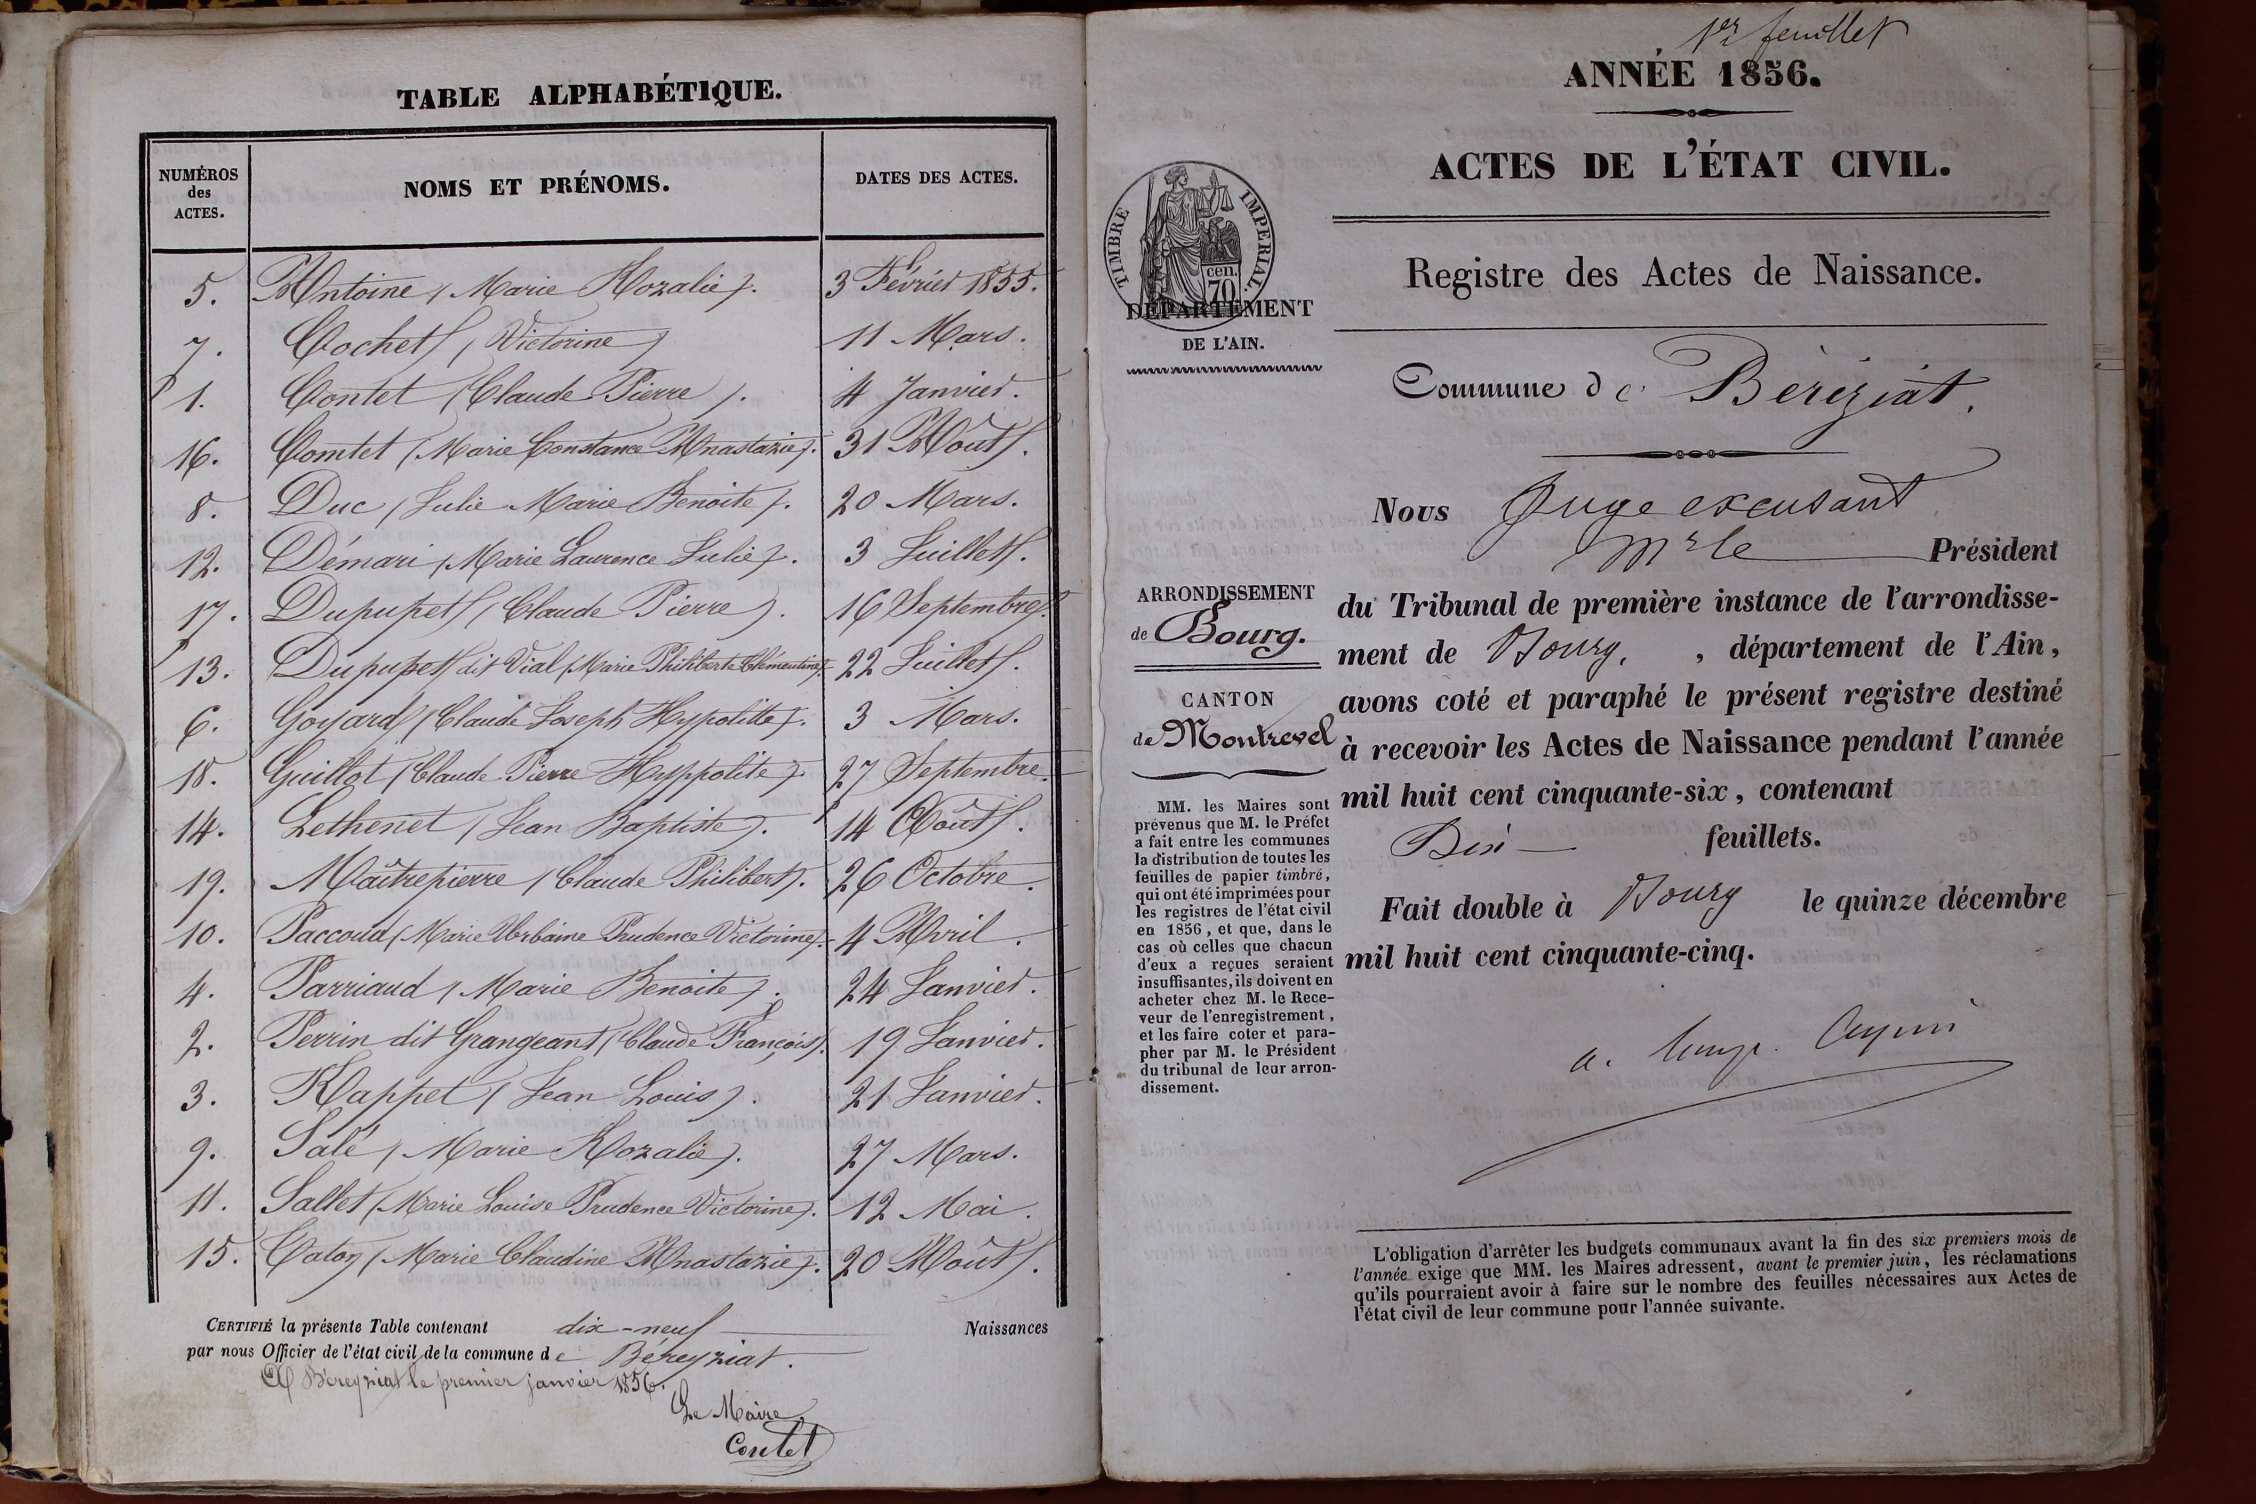 TABLE ALPHABÉTIQUE.
NUMÉROS des ACTES. NOMS ET PRÉNOMS. DATES DES ACTES.
5. Antoine (Marie Rozalie). 3 Février 1855.
7. Cochet (Victorine) 11 Mars.
1. Contet (Claude Pierre). 4 Janvier.
16. Comtet (Marie Constance Anastazie). 31 Août.
8. Duc (Julie Marie Benoite). 20 Mars.
12. Démari (Marie Laurence Julie). 3 Juillet.
17. Dupupet (Claude Pierre). 16 Septembre.
13. Dupupet dit Vial (Marie Philiberte Clémentine). 22 Juillet.
6. Goyard (Claude Joseph Hypolitte). 3 Mars.
18. Guillot (Claude Pierre Hyppolite). 27 Septembre.
14. Lethenet (Jean Baptiste). 14 Août.
19. Maîtrepierre (Claude Philibert). 26 Octobre.
10. Paccoud (Marie Urbaine Prudence Victorine). 4 Avril.
4. Parriaud (Marie Benoite). 24 Janvier.
2. Perrin dit Grangeant (Claude François). 19 Janvier.
3. Rappet (Jean Louis). 21 Janvier.
9. Salé (Marie Rozalie). 27 Mars.
11. Sallet (Marie Louise Prudence Victorine). 12 Mai.
15. Caton (Marie Claudine Anastazie). 20 Août.
CERTIFIÉ la présente Table contenant dix-neuf Naissances
par nous Officier de l'état civil de la commune de Béreyziat.
A Béreyziat le premier janvier 1856.
Le Maire
Contet
1er feuillet
ANNÉE 1856.
ACTES DE L'ÉTAT CIVIL.
TIMBRE IMPERIAL.
cen.
70
DÉPARTEMENT
DE L'AIN.
Registre des Actes de Naissance.
Commune de Béréziat.
ARRONDISSEMENT
de Bourg.
CANTON
de Montrevel
MM. les Maires sont
prévenus que M. le Préfet
a fait entre les communes
la distribution de toutes les
feuilles de papier timbré,
qui ont été imprimées pour
les registres de l'état civil
en 1856, et que, dans le
cas où celles que chacun
d'eux a reçues seraient
insuffisantes, ils doivent en
acheter chez M. le Rece-
veur de l'enregistrement,
et les faire coter et para-
pher par M. le Président
du tribunal de leur arron-
dissement.
Nous Juge excusant
Mr le Président
du Tribunal de première instance de l'arrondisse-
ment de Bourg, , département de l'Ain,
avons coté et paraphé le présent registre destiné
à recevoir les Actes de Naissance pendant l'année
mil huit cent cinquante-six, contenant
Dix feuillets.
Fait double à Bourg le quinze décembre
mil huit cent cinquante-cinq.
L'obligation d'arrêter les budgets communaux avant la fin des six premiers mois de
l'année exige que MM. les Maires adressent, avant le premier juin, les réclamations
qu'ils pourraient avoir à faire sur le nombre des feuilles nécessaires aux Actes de
l'état civil de leur commune pour l'année suivante.